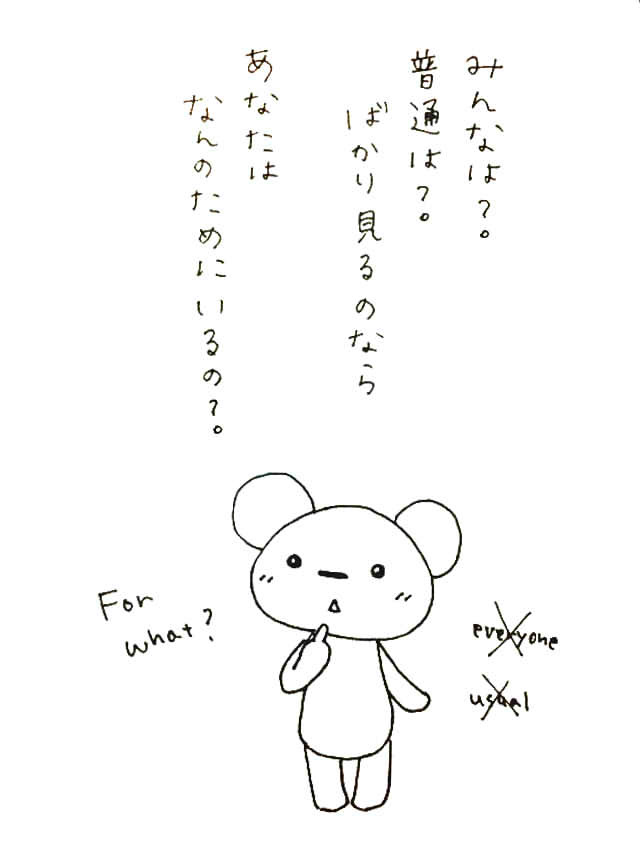 みんなは?。
普通は?。
ばかり見るのなら
あなたは
なんのためにいるの?。
For
what?
everyone
usual